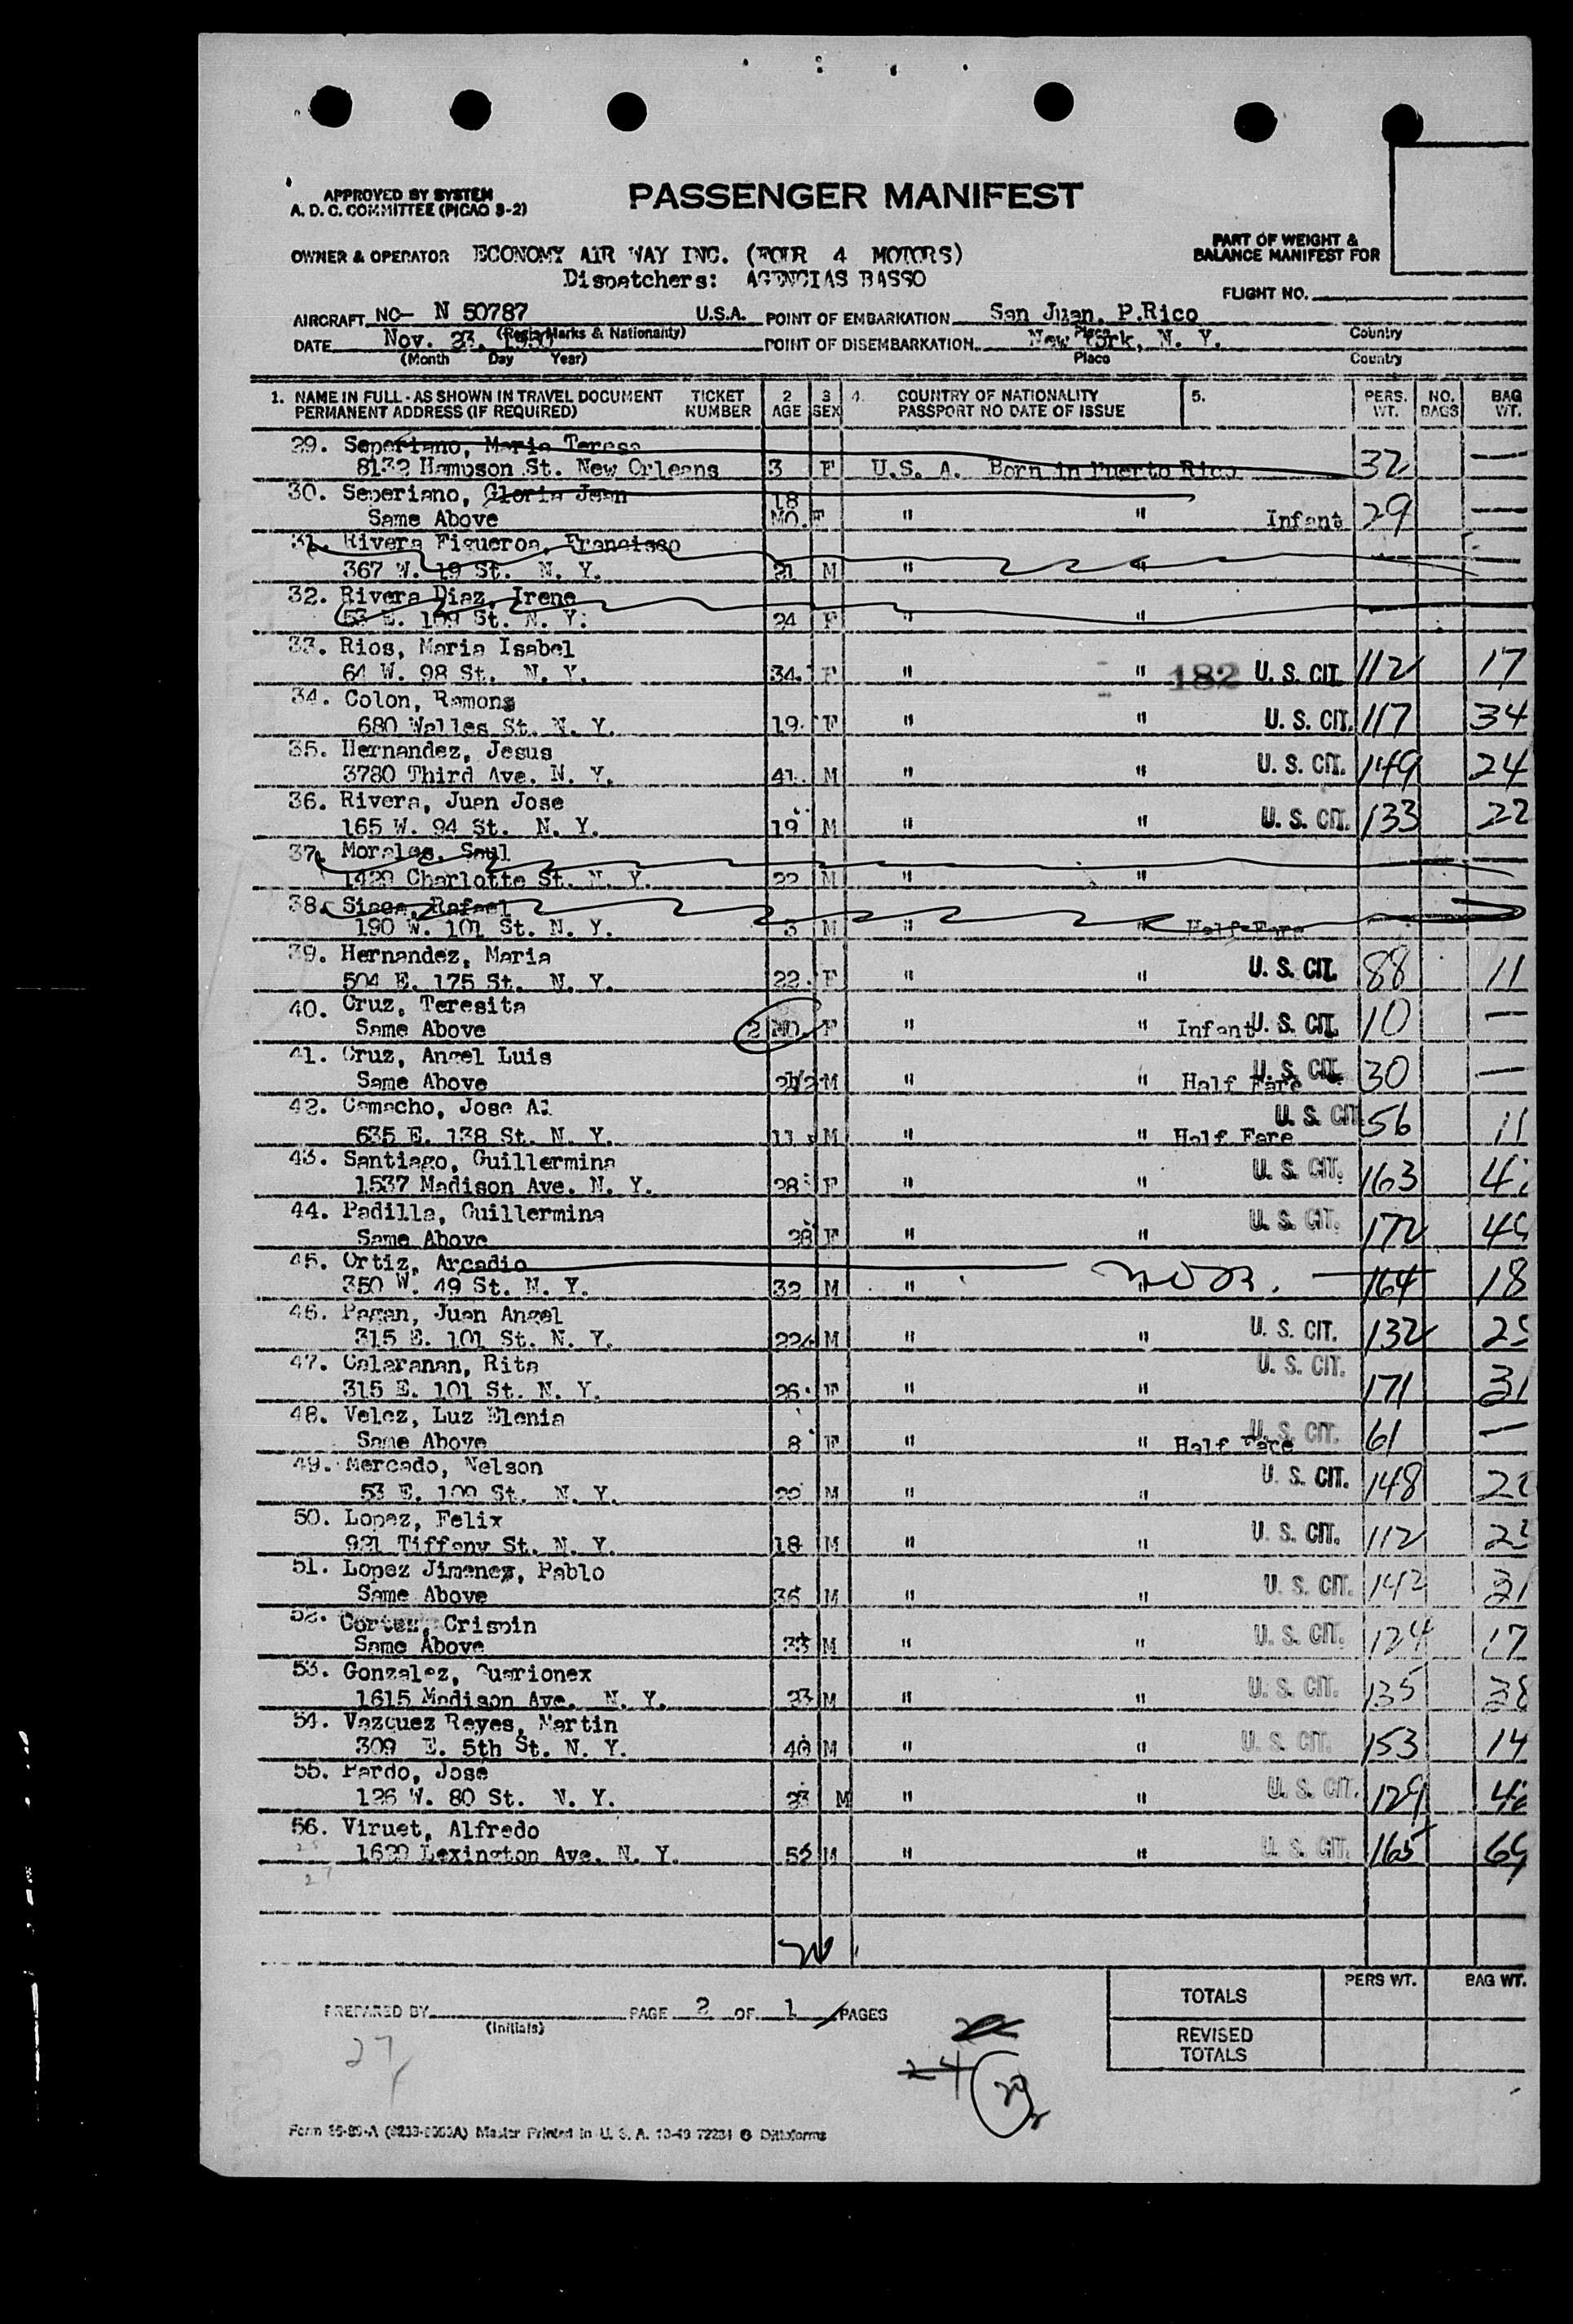 APPROVED BY SYSTEM
A. D. C. COMMITTEE (PICAO 3-2)
PASSENGER MANIFEST
PART OF WEIGHT &
BALANCE MANIFEST FOR
OWNER & OPERATOR ECONOMY AIR WAY INC. (FOUR 4 MOTORS)
Dispatchers: AGENCIAS BASSO
FLIGHT NO.
AIRCRAFT NC- N 50787 U.S.A. POINT OF EMBARKATION San Juan, P.Rico
(Regis Marks & Nationality) Place Country
DATE Nov. 23, 1950 POINT OF DISEMBARKATION New York, N. Y.
(Month Day Year) Place Country
1. NAME IN FULL - AS SHOWN IN TRAVEL DOCUMENT TICKET 2 3 4. COUNTRY OF NATIONALITY 5. PERS. NO. BAG
PERMANENT ADDRESS (IF REQUIRED) NUMBER AGE SEX PASSPORT NO DATE OF ISSUE WT. BAGS WT.
29. Seperiano, Maria Teresa
8132 Hampson St. New Orleans 3 F U.S. A. Born in Puerto Rico 32 —
30. Seperiano, Gloria Jean 18
Same Above MO. F " " Infant 29 —
31. Rivera Figueroa, Francisco
367 W. 19 St. N. Y. 21 M " "
32. Rivera Diaz, Irene
53 E. 109 St. N. Y. 24 F " "
33. Rios, Maria Isabel
64 W. 98 St. N. Y. 34 F " " 182 U. S. CIT. 112 17
34. Colon, Ramona
680 Walles St. N. Y. 19 F " " U. S. CIT. 117 34
35. Hernandez, Jesus
3780 Third Ave. N. Y. 41 M " " U. S. CIT. 149 24
36. Rivera, Juan Jose
165 W. 94 St. N. Y. 19 M " " U. S. CIT. 133 22
37. Morales, Saul
1429 Charlotte St. N. Y. 22 M " "
38. Siaca, Rafael
190 W. 101 St. N. Y. 3 M " " Half Fare
39. Hernandez, Maria
504 E. 175 St. N. Y. 22 F " " U. S. CIT. 88 11
40. Cruz, Teresita
Same Above 2 MO. F " " Infant U. S. CIT. 10 —
41. Cruz, Angel Luis
Same Above 2 1/2 M " " Half Fare U. S. CIT. 30 —
42. Camacho, Jose Al
635 E. 138 St. N. Y. 11 M " " Half Fare U. S. CIT 56 11
43. Santiago, Guillermina
1537 Madison Ave. N. Y. 28 F " " U. S. CIT. 163
44. Padilla, Guillermina
Same Above 28 F " " U. S. CIT. 172
45. Ortiz, Arcadio
350 W. 49 St. N. Y. 32 M " " 164 18
46. Pagan, Juan Angel
315 E. 101 St. N. Y. 22 M " " U. S. CIT. 132 25
47. Calaranan, Rita
315 E. 101 St. N. Y. 26 F " " U. S. CIT. 171 31
48. Velez, Luz Elenia
Same Above 8 F " " Half Fare U. S. CIT. 61 —
49. Mercado, Nelson
53 E. 109 St. N. Y. 22 M " " U. S. CIT. 148
50. Lopez, Felix
921 Tiffany St. N. Y. 18 M " " U. S. CIT. 112 23
51. Lopez Jimenez, Pablo
Same Above 36 M " " U. S. CIT. 142 31
52. Cortez, Crispin
Same Above 33 M " " U. S. CIT. 124 17
53. Gonzalez, Guarionex
1615 Madison Ave. N. Y. 23 M " " U. S. CIT. 135 38
54. Vazquez Reyes, Martin
309 E. 5th St. N. Y. 40 M " " U. S. CIT. 153 14
55. Pardo, Jose
126 W. 80 St. N. Y. 23 M " " U. S. CIT. 129
56. Viruet, Alfredo
1629 Lexington Ave. N. Y. 52 M " " U. S. CIT. 165
PERS WT. BAG WT.
TOTALS
PREPARED BY PAGE 2 OF 1 PAGES
(Initials)
REVISED
TOTALS
27
24
Master Printed in U. S. A.